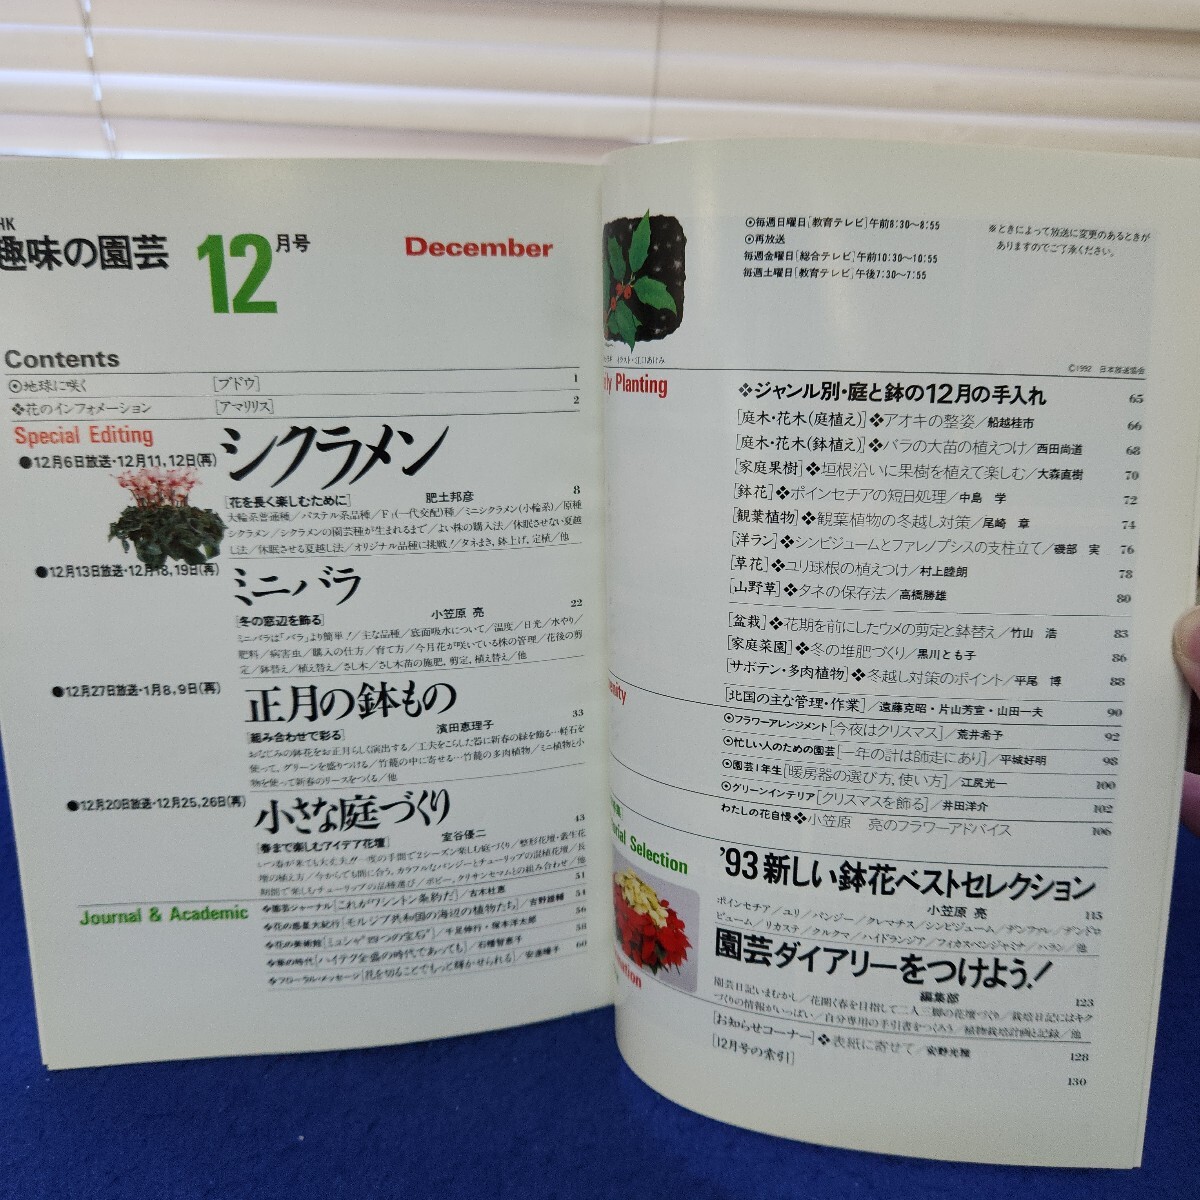 HK
趣味の園芸
12月号
December
Contents
⦿地球に咲く [ブドウ] 1
❖花のインフォメーション [アマリリス] 2
Special Editing
●12月6日放送・12月11,12日(再)
シクラメン
[花を長く楽しむために] 肥土邦彦 8
大輪系普通種/パステル系品種/F₁(一代交配)種/ミニシクラメン(小輪系)/原種
シクラメン/シクラメンの園芸種が生まれるまで/よい株の購入法/休眠させない夏越
し法/休眠させる夏越し法/オリジナル品種に挑戦!/タネまき,鉢上げ,定植/他
●12月13日放送・12月18,19日(再)
ミニバラ
[冬の窓辺を飾る] 小笠原 亮 22
ミニバラは「バラ」より簡単!/主な品種/底面吸水について/温度/日光/水やり/
肥料/病害虫/購入の仕方/育て方/今月花が咲いている株の管理/花後の剪
定/鉢替え/植え替え/さし木/さし木苗の施肥,剪定,植え替え/他
●12月27日放送・1月8,9日(再)
正月の鉢もの
[組み合わせで彩る] 濱田恵理子 33
おなじみの鉢花をお正月らしく演出する/工夫をこらした器に新春の緑を飾る…軽石を
使って,グリーンを盛りつける/竹籠の中に寄せる…竹籠の多肉植物/ミニ植物と小
物を使って新春のリースをつくる/他
●12月20日放送・12月25,26日(再)
小さな庭づくり
[春まで楽しむアイデア花壇] 室谷優二 43
いつ春が来ても大丈夫!!一度の手間で2シーズン楽しむ庭づくり/整形花壇・養生花
壇の植え方/今からでも間に合う,カラフルなパンジーとチューリップの混植花壇/長
期間で楽しむチューリップの品種選び/ポピー,クリサンセマムとの組み合わせ/他
Journal & Academic
❖園芸ジャーナル[これがワシントン条約だ]/古木杜恵 51
❖花の惑星大紀行[モルジブ共和国の海辺の植物たち]/吉野雄輔 54
❖花の美術館[ミュシャ“四つの宝石”]/千足伸行・塚本洋太郎 56
❖春の時代[ハイテク全盛の時代であっても]/石種智恵子 58
❖フローラル・メッセージ[花を切ることでもっと輝かせられる]/安達瞳子 60
⦿毎週日曜日[教育テレビ]午前8:30〜8:55
⦿再放送
毎週金曜日[総合テレビ]午前10:30〜10:55
毎週土曜日[教育テレビ]午後7:30〜7:55
※ときによって放送に変更のあるときが
ありますのでご了承ください。
イラスト・江口あけみ
©1992 日本放送協会
ly Planting
❖ジャンル別・庭と鉢の12月の手入れ 65
[庭木・花木(庭植え)]❖アオキの整姿/船越桂市 66
[庭木・花木(鉢植え)]❖バラの大苗の植えつけ/西田尚道 68
[家庭果樹]❖垣根沿いに果樹を植えて楽しむ/大森直樹 70
[鉢花]❖ポインセチアの短日処理/中島 学 72
[観葉植物]❖観葉植物の冬越し対策/尾崎 章 74
[洋ラン]❖シンビジュームとファレノプシスの支柱立て/磯部 実 76
[草花]❖ユリ球根の植えつけ/村上睦朗 78
[山野草]❖タネの保存法/高橋勝雄 80
[盆栽]❖花期を前にしたウメの剪定と鉢替え/竹山 浩 83
[家庭菜園]❖冬の堆肥づくり/黒川とも子 86
[サボテン・多肉植物]❖冬越し対策のポイント/平尾 博 88
[北国の主な管理・作業]/遠藤克昭・片山芳宣・山田一夫 90
enity
⦿フラワーアレンジメント[今夜はクリスマス]/荒井希子 92
⦿忙しい人のための園芸[一年の計は師走にあり]/平城好明 98
⦿園芸1年生[暖房器の選び方,使い方]/江尻光一 100
⦿グリーンインテリア[クリスマスを飾る]/井田洋介 102
わたしの花自慢❖小笠原 亮のフラワーアドバイス 106
rial Selection
'93新しい鉢花ベストセレクション
小笠原 亮 115
ポインセチア/ユリ/パンジー/クレマチス/シンビジューム/デンファレ/デンドロ
ビューム/リカステ/クルクマ/ハイドランジア/フィカスベンジャミナ/ハラン/他
園芸ダイアリーをつけよう!
編集部 123
園芸日記いまむかし/花開く春を目指して二人三脚の花壇づくり/栽培日記にはキク
づくりの情報がいっぱい/自分専用の手引書をつくろう/植物栽培計画と記録/他
mation
[お知らせコーナー]❖表紙に寄せて/安野光雅 128
[12月号の索引] 130